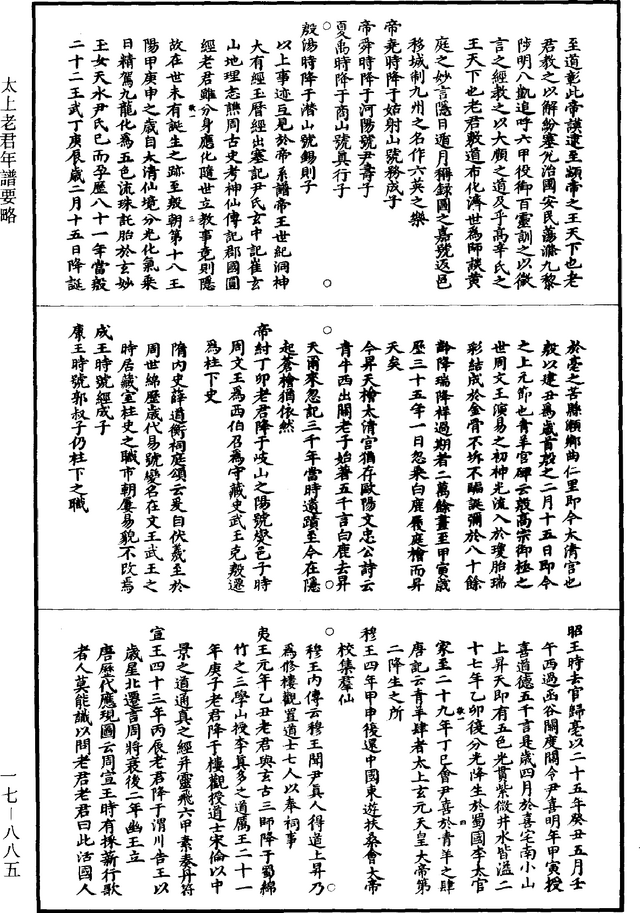 至道彰此帝謨遠至顓帝之王天下也老
君教之以解紛塞兌治國安民蕩滌九黎
陟明八凱追呼六甲役御百靈訓之以微
言之經教之以大順之道及乎高辛氏之
王天下也老君敷道布化濟世為師談黃
庭之妙言隱日遁月稱錄圖之嘉號返邑
移城制九州之名作六英之樂
帝堯時降于姑射山號務成子
帝舜時降于河陽號尹壽子
夏禹時降于商山號真行子
殷湯時降于潛山號錫則子
以上事迹互見於帝系譜帝王世紀洞神
大有經玉曆經出塞記尹氏玄中記崔玄
山地理志譙周古史考神仙傳記郡國圖
經老君雖分身應化隨世立教事竟則隱
故在世未有誕生之跡至殷朝第十八王
陽甲庚申之歲自太清仙境分光化氣乘
日精駕九龍化為五色流珠託胎於玄妙
玉女天水尹氏已而孕歷八十一年當殷
二十二王武丁庚辰歲二月十五日降誕
於亳之苦縣瀨鄉曲仁里即今太清宮也
殷以建丑為歲首殷之二月十五日即今
之上元節也青羊宮碑云殷高宗御極之
世周文王演易之初神光流入於瓊胎瑞
彩結成於金骨不坼不驅誕彌於八十餘
齡降瑞降祥過期者二萬餘晝至甲寅歲
歷三十五年一日忽乘白鹿履庭檜而昇
天矣
今昇天檜太清宮猶存歐陽文忠公詩云
青牛西出關老子始著五千言白鹿去昇
天爾來忽記三千年當時遺蹟至今在隱
起蒼檜猶依然
帝紂丁卯老君降于岐山之陽號變邑子時
周文王為西伯召為守藏史武王克殷遷
為柱下史
隋內史薛道衡祠庭頌云爰自伏羲至於
周世綿歷歲代易號變名在文王武王之
時居藏室柱史之職市朝屢易貌不改焉
成王時號經成子
康王時號郭叔子仍柱下之職
昭王時去官歸亳以二十五年癸丑五月壬
午西過函谷關度關令尹喜明年甲寅授
喜道德五千言是歲四月於喜宅南小山
上昇天即有五色光貫紫微井水皆溢二
十七年乙卯復分光降生於蜀國李太官
家至二十九年丁巳會尹喜於青羊之肆
唐記云青羊肆者太上玄元天皇大帝第
二降生之所
穆王四年甲申後還中國東遊扶桑會大帝
校集羣仙
穆王內傳云穆王聞尹真人得道上昇乃
為修樓觀置道士七人以奉祠事
夷王元年乙丑老君與玄古三師降于蜀綿
竹之三學山授李真多之道厲王二十一
年庚子老君降于樓觀授道士宋倫以中
景之道通真之經并靈飛六甲素奏丹符
宣王四十三年丙辰老君降于渭川告王以
歲星北遷言周將衰後二年幽王立
唐歷代應現圖云周宣王時有採薪行歌
者人莫能識以問老君老君曰此活國人
太上老君年譜要略
一七—八八五